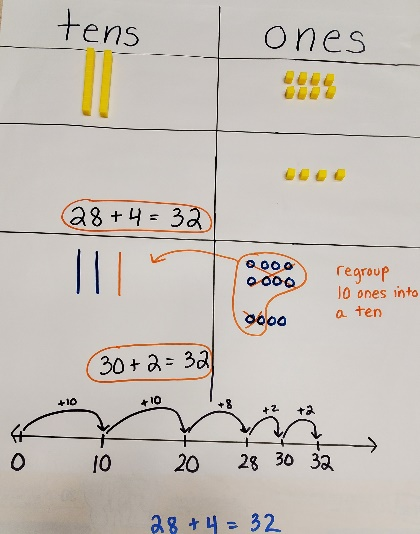 tens ones
28 + 4 = 32
regroup
10 ones into
a ten
30 + 2 = 32
+10 +10 +8 +2 +2
0 10 20 28 30 32
28 + 4 = 32